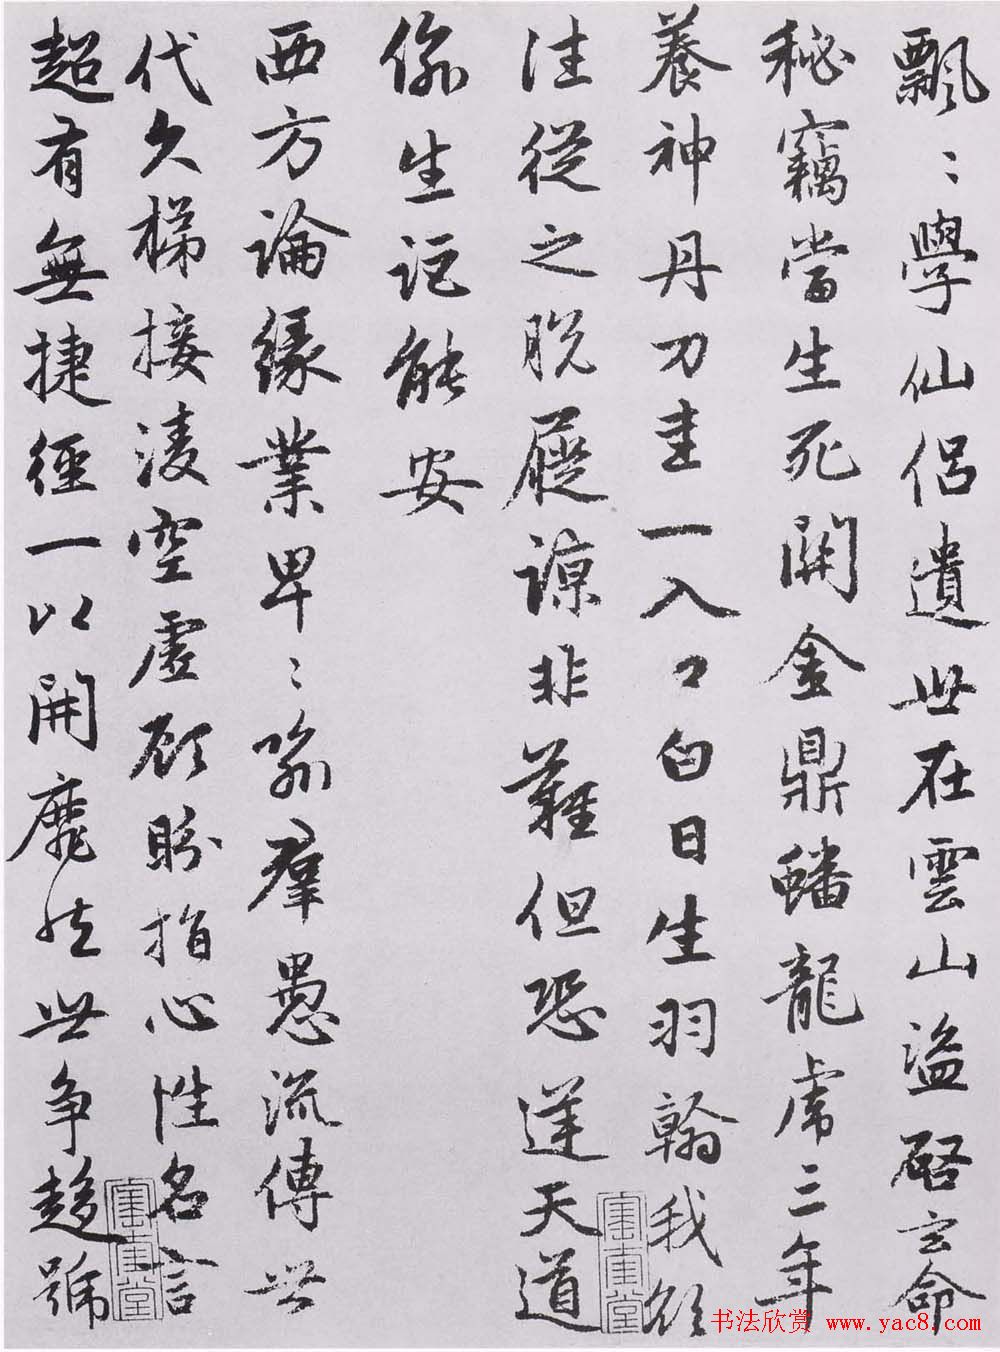 飄〻學仙侣遺世在雲山盜啓玄命
秘竊當生死關金鼎蟠龍虎三年
養神丹刀圭一入口白日生羽翰我欲
往從之脱屣諒非難但恐逆天道
偷生詎能安
西方論緣業卑〻喻羣愚流傳世
代久梯接淩空虚顧盻指心性名言
超有無捷徑一以開靡然世争趍號
书法欣赏 www.yac8.com